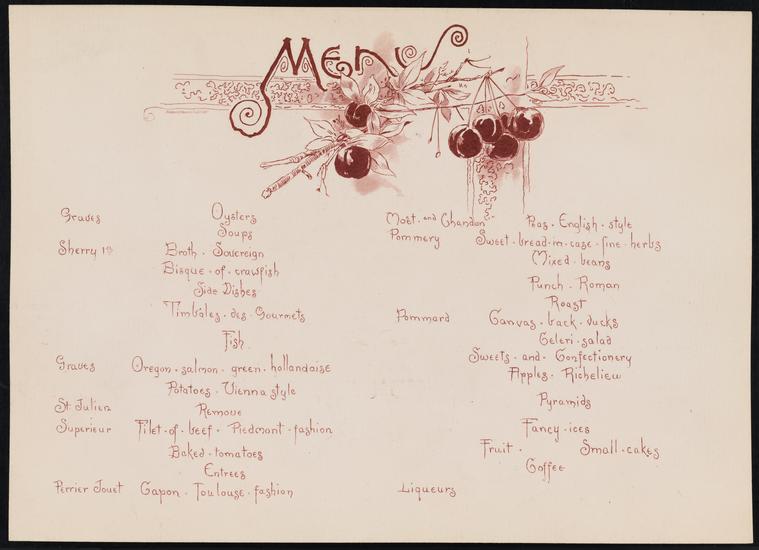 Menu
Graves Oysters
Soups
Sherry Broth - Sovereign
Bisque - of - crawfish
Side Dishes
Timbales - des - Gourmets
Fish
Graves Oregon - salmon - green - hollandaise
Potatoes - Vienna style
St Julien Remove
Superieur Filet - of - beef - Piedmont - fashion
Baked - tomatoes
Entrees
Perrier Jouet Capon - Toulouse - fashion
Moët and Chandon Peas - English - style
Pommery Sweet - bread - in - case - fine - herbs
Mixed - beans
Punch - Roman
Roast
Pommard Canvas - back - ducks
Celeri - salad
Sweets - and - Confectionery
Apples - Richelieu
Pyramids
Fancy - ices
Fruit - Small - cakes
Coffee
Liqueurs